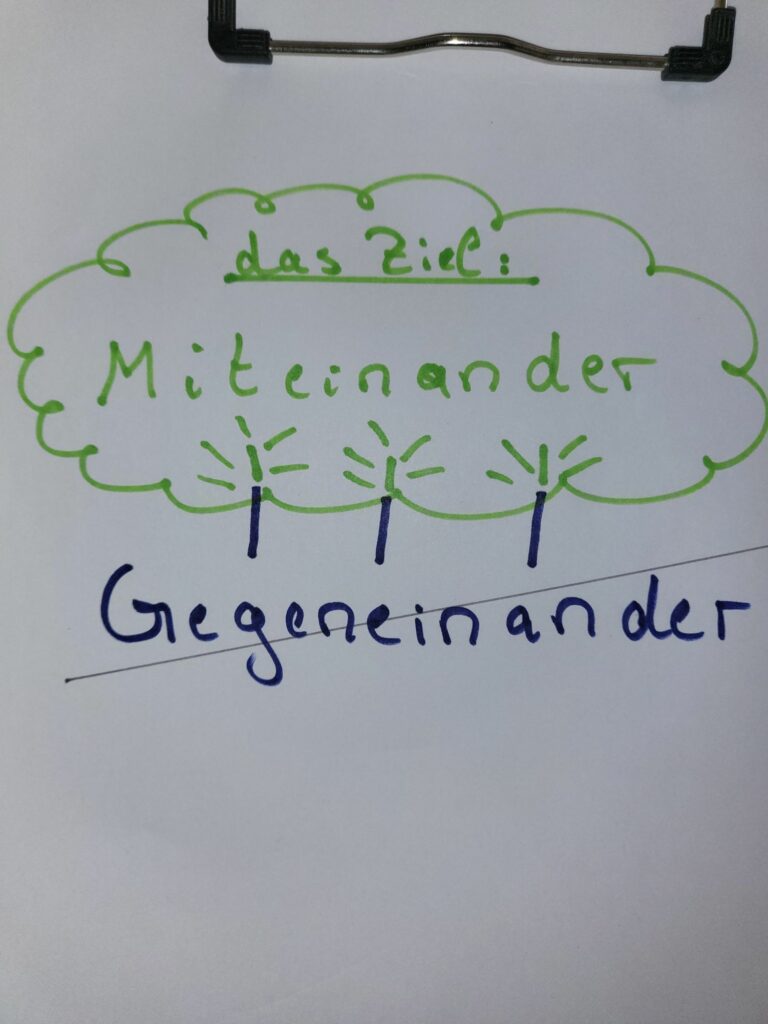 das Ziel:
Miteinander
Gegeneinander